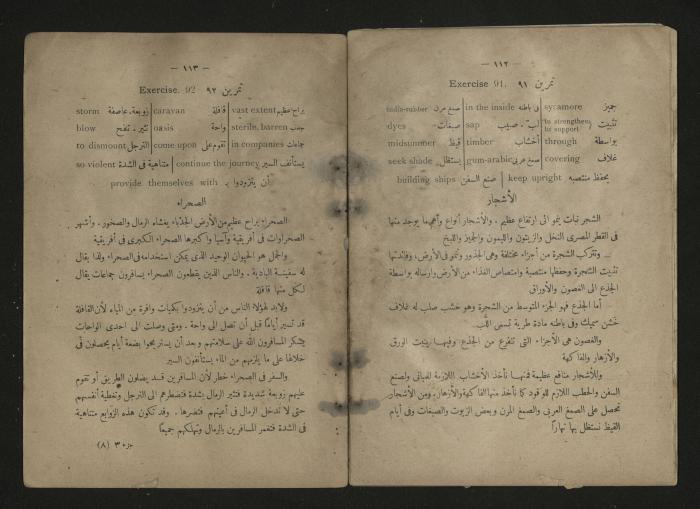 — ١١٢ —
Exercise 91. تمرين ٩١
india-rubber صمغ مرن in the inside فى باطنه sycamore جميز
dyes صبغات sap لب . صبيب to strengthen, to support تثبيت
midsummer قيظ timber أخشاب through بواسطة
seek shade يستظل gum-arabic صمغ عربى covering غلاف
building ships صنع السفن keep upright يحفظ منتصبه
الأشجار
الشجر نبات ينمو الى ارتفاع عظيم . والأشجار أنواع وأهم ما يوجد منها
فى القطر المصرى النخل والزيتون والليمون والجميز واللبخ
وتتركب الشجرة من أجزاء مختلفة وهى الجذور وتنمو فى الأرض، وفائدتها
تثبيت الشجرة وحفظها منتصبة وامتصاص الغذاء من الأرض وارساله بواسطة
الجذع الى الغصون والأوراق
أما الجذع فهو الجزء المتوسط من الشجرة وهو خشب صلب له غلاف
خشن سميك وفى باطنه مادة طرية تسمى اللب
والغصون هى الأجزاء التى تتفرع من الجذع وفيها ينبت الورق
والأزهار والفاكهة
وللأشجار منافع عظيمة فمنها نأخذ الأخشاب اللازمة للمبانى ولصنع
السفن والحطب اللازم للوقود كما نأخذ منها الفاكهة والأزهار . ومن الأشجار
نحصل على الصمغ العربى والصمغ المرن وبعض الزيوت والصبغات وفى أيام
القيظ نستظل بها نهاراً
— ١١٣ —
Exercise. 92 تمرين ٩٢
storm زوبعة . عاصفة caravan قافلة vast extent براح عظيم
blow تثير . تنفخ oasis واحة sterile, barren جدب
to dismount الترجل come upon تقوم على in companies جماعات
so violent متناهية فى الشدة continue the journey يستأنف السير
provide themselves with أن يتزودوا بـ
الصحراء
الصحراء براح عظيم من الأرض الجدباء يغشاه الرمال والصخور . وأشهر
الصحراوات فى أفريقية وآسيا وأكبرها الصحراء الكبرى فى أفريقية
والجمل هو الحيوان الوحيد الذى يمكن استخدامه فى الصحراء ولذا يقال
له سفينة البادية . والناس الذين يقطعون الصحراء يسافرون جماعات يقال
لكل منها قافلة
ولابد لهؤلاء الناس من أن يتزودوا بكميات وافرة من المياه لأن القافلة
قد تسير أياماً قبل أن تصل الى واحة . ومتى وصلت الى احدى الواحات
يشكر المسافرون الله على سلامتهم وبعد أن يستريحوا بضعة أيام يحصلون فى
خلالها على ما يلزمهم من الماء يستأنفون السير
والسفر فى الصحراء خطر لأن المسافرين قد يضلون الطريق أو تقوم
عليهم زوبعة شديدة فتثير الرمال بشدة فتضطرهم الى الترجل وتغطية أنفسهم
حتى لا تدخل الرمال فى أعينهم فتضرها . وقد تكون هذه الزوابع متناهية
فى الشدة فتغمر المسافرين بالرمال وتهلكهم جميعاً
جزء ٣ (٨)